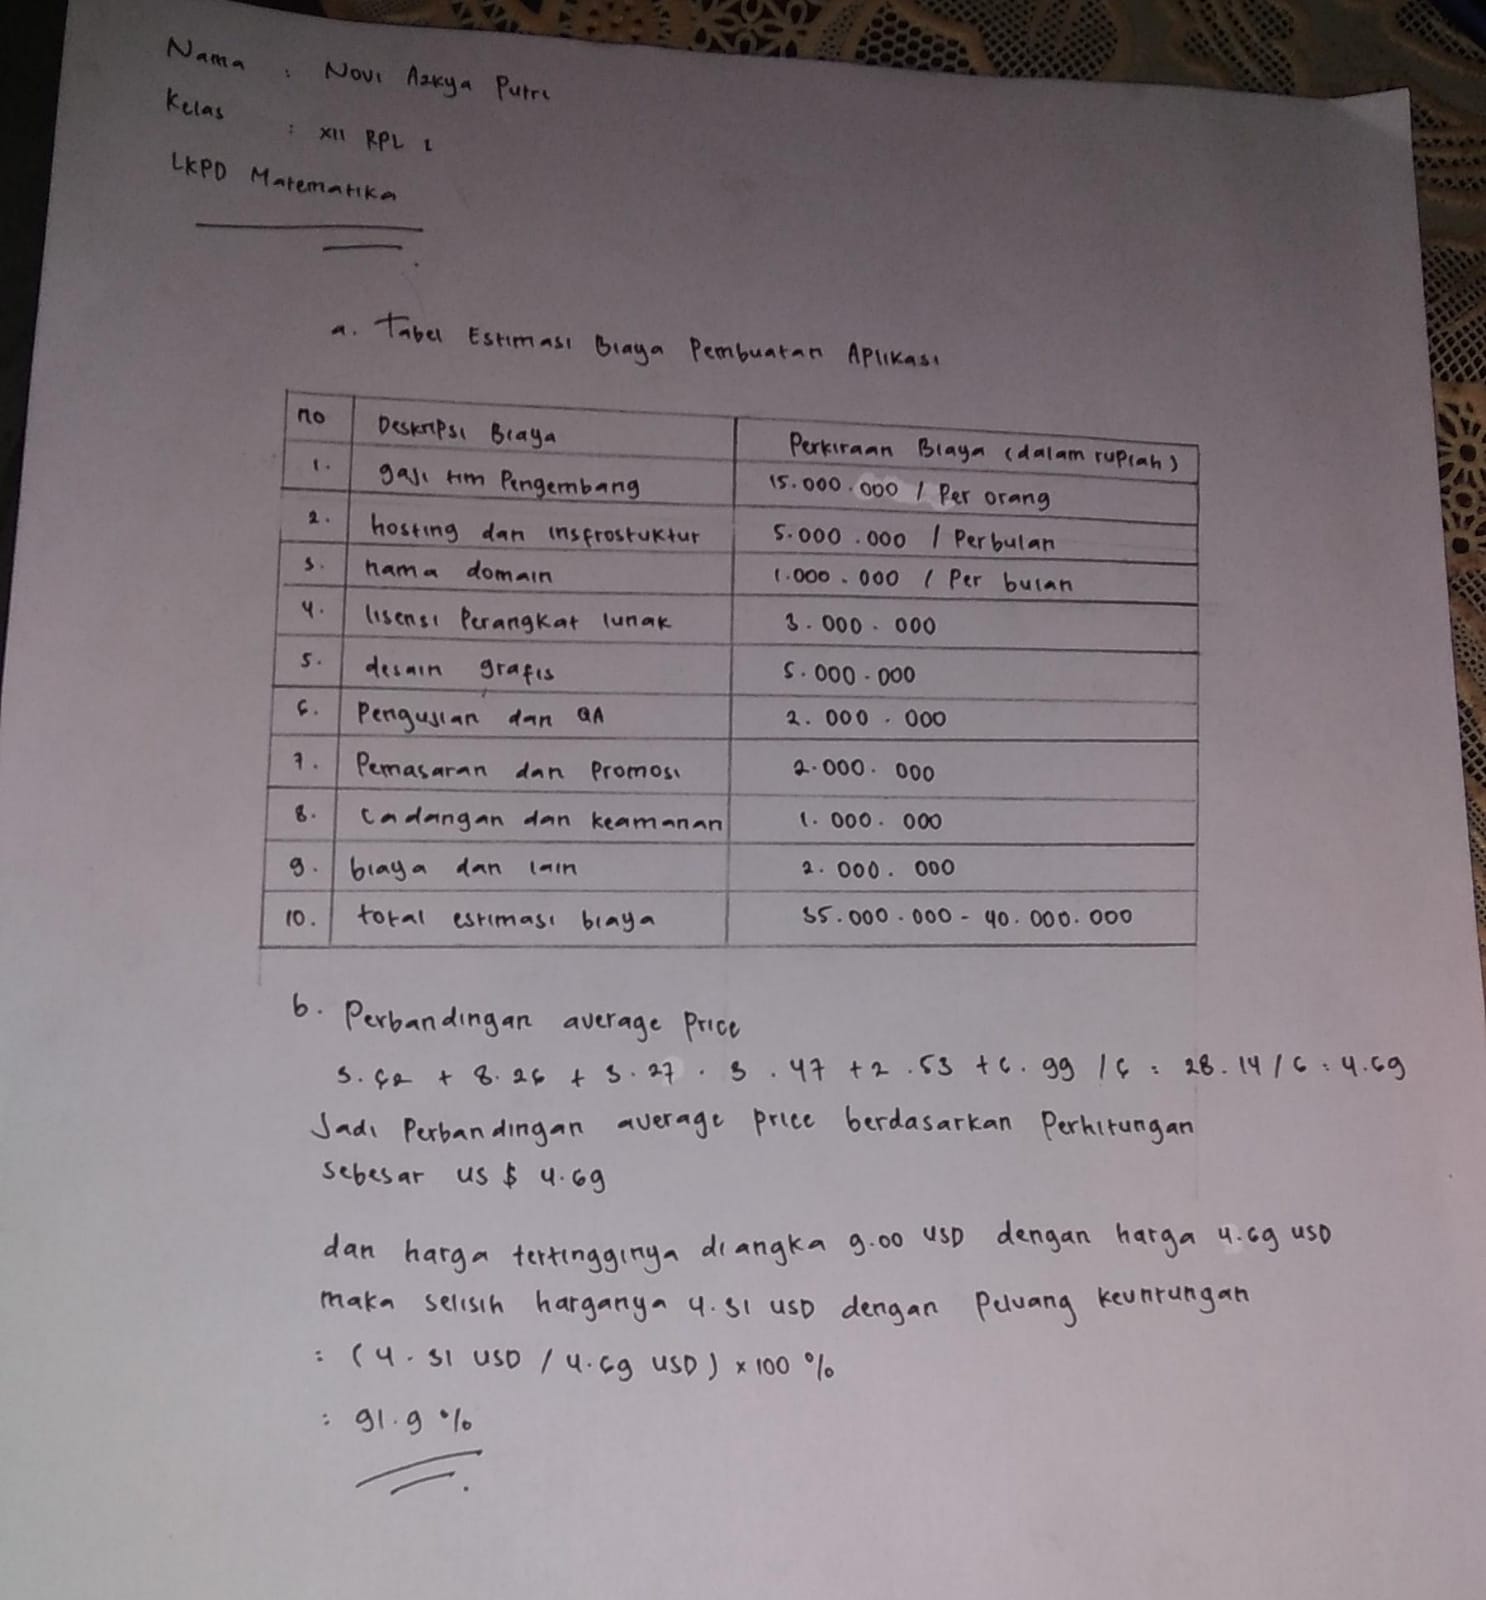 Nama : Novi Azkya Putri
Kelas : XII RPL 1
LKPD Matematika
a. Tabel Estimasi Biaya Pembuatan Aplikasi
no Deskripsi Biaya Perkiraan Biaya (dalam rupiah)
1. gaji tim Pengembang 15.000.000 / Per orang
2. hosting dan insfrostuktur 5.000.000 / Perbulan
3. nama domain 1.000.000 / Per bulan
4. lisensi Perangkat lunak 3.000.000
5. desain grafis 5.000.000
6. Pengujian dan QA 2.000.000
7. Pemasaran dan Promosi 2.000.000
8. Cadangan dan keamanan 1.000.000
9. biaya dan lain 2.000.000
10. total estimasi biaya 35.000.000 - 40.000.000
b. Perbandingan average Price
3.62 + 8.26 + 3.27 . 3.47 + 2.53 + 6.99 / 6 : 28.14 / 6 : 4.69
Jadi Perbandingan average price berdasarkan Perhitungan
sebesar US $ 4.69
dan harga tertingginya diangka 9.00 USD dengan harga 4.69 USD
maka selisih harganya 4.31 USD dengan Peluang keuntungan
: (4.31 USD / 4.69 USD) x 100 %
: 91.9 %